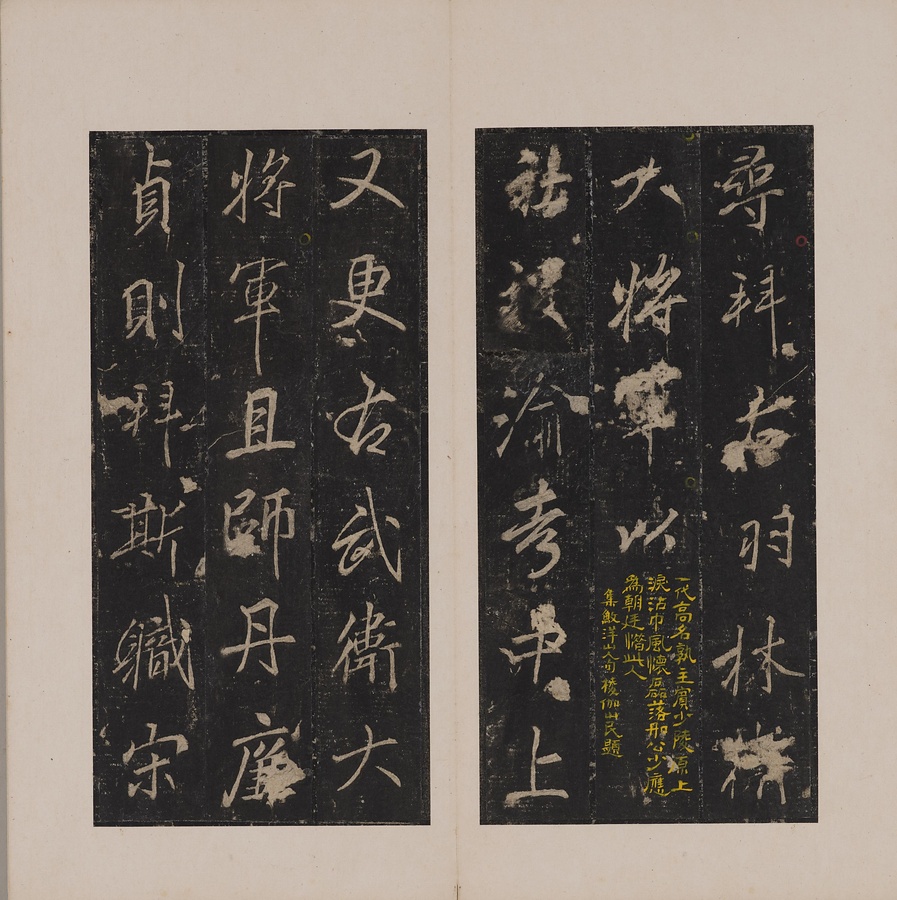 尋拜右羽林衛
大將軍以
一代高名孰主賓少陵原上
淚沾巾風懷磊落如公少應
為朝廷惜此人
集漁洋山人句棱伽山民題
社渝考中上
又更右武衛大
將軍且師丹廉
貞則拜斯職宋